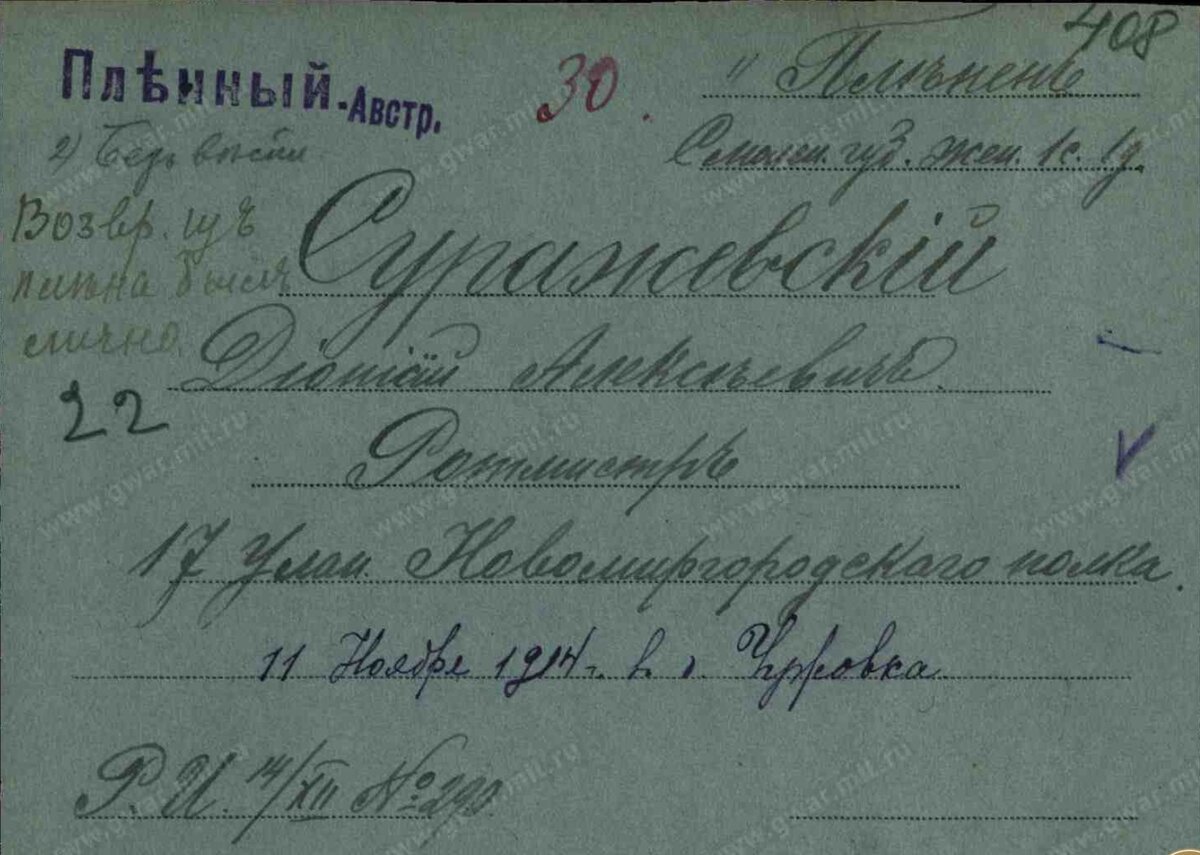 408
Плѣнный-Австр.
30.
" Плѣненъ
2) Безъ вѣсти
Смолен. губ. жен. 1 с. 1 д.
Возвр. изъ
плѣна былъ
лично
Суражевскій
Діонисій Алексѣевичъ.
22
Ротмистръ
17 Улан. Новомиргородскаго полка.
11 Ноября 1914 г. в.
Р. И. 14/XII № 290.
www.gwar.mil.ru